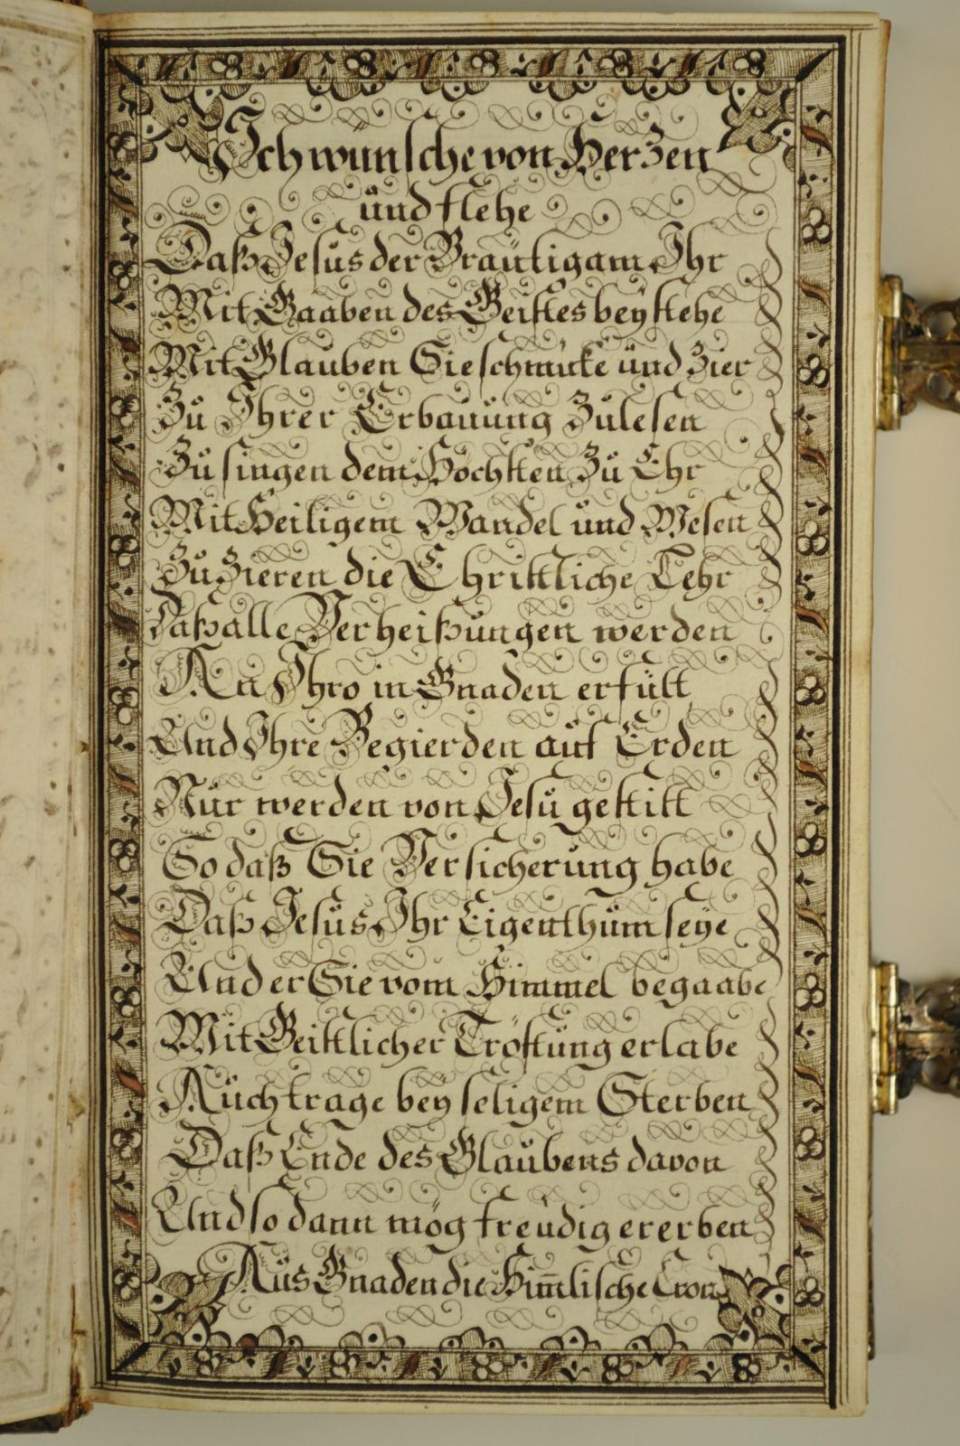 Ich wünsche von Herzen
ünd flehe
Daß Jesüs der Bräutigam Ihr
Mit Gaaben des Geistes beÿstehe
Mit Glauben Sie schmücke ünd Zier
Zü Ihrer Erbauüng Zülesen
Zü singen dem Höchsten Zü Ehr
Mit Heiligem Wandel ünd Wesen
Zü Zieren die Christliche Lehr
Daß alle Verheißüngen werden
An Ihro in Gnaden erfült
Und Ihre Begierden aüf Erden
Nür werden von Jesü gestilt
So daß Sie Versicherüng habe
Daß Jesüs Ihr Eigenthüm seÿe
Und er Sie vom Himmel begaabe
Mit Geistlicher Tröstüng erlabe
Aüch trage beÿ seligem Sterben
Daß Ende des Glaübens davon
Und so dann mög freüdig ererben
Aüs Gnaden die Him̅lische Cron